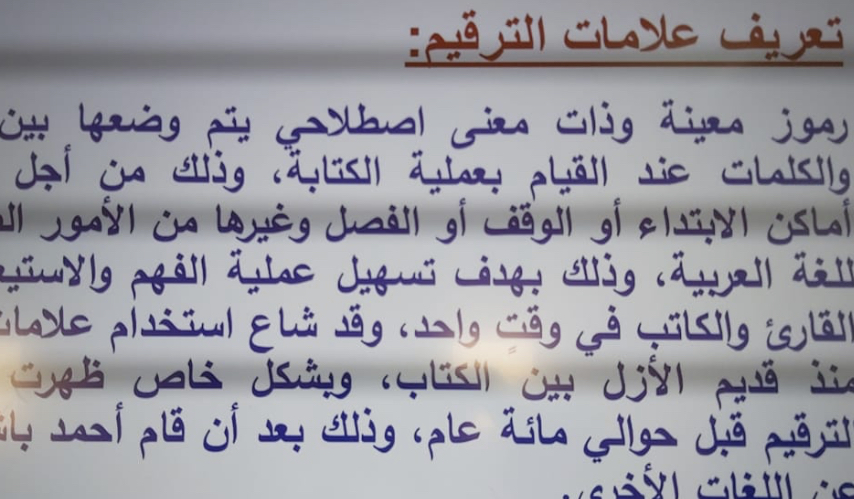 تعريف علامات الترقيم:
رموز معينة وذات معنى اصطلاحي يتم وضعها بين
والكلمات عند القيام بعملية الكتابة، وذلك من أجل
أماكن الابتداء أو الوقف أو الفصل وغيرها من الأمور
للغة العربية، وذلك بهدف تسهيل عملية الفهم
القارئ والكاتب في وقتٍ واحد، وقد شاع استخدام
منذ قديم الأزل بين الكتاب، وبشكل خاص ظهرت
الترقيم قبل حوالي مائة عام، وذلك بعد أن قام أحمد
عن اللغات الأخرى.